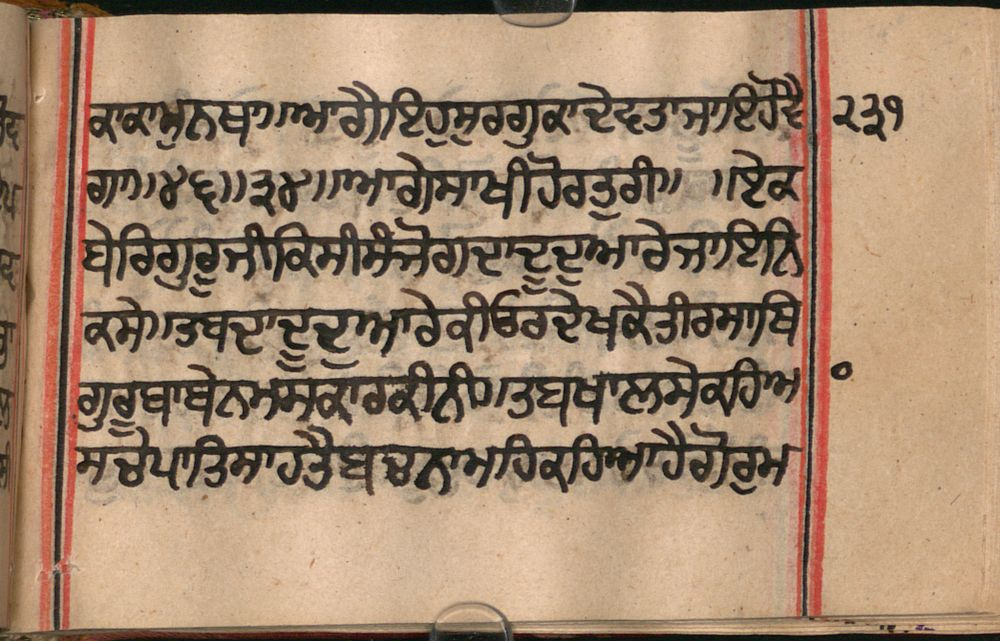 ਕਾਕਾਮੁਨਥਾ॥ਆਗੈ।ਇਹੁਸੁਰਗੁਕਾਦੇਵਤਾਜਾਇਹੋਵੈ ੨੩੧
ਗਾ॥੪੬॥੩੪॥ਆਗੇਸਾਖੀਹੋਰਤੁਰੀ॥ ॥ਇਕ
ਬੇਰਿਗੁਰੂਜੀਕਿਸੀਸੰਜੋਗਦਾਦੂਦੁਆਰੇਜਾਇਨਿ
ਕਸੇ॥ਤਬਦਾਦੂਦੁਆਰੇਕੀਓਰਦੇਖਕੈਤੀਰਸਾਥਿ
ਗੁਰੂਬਾਬੇਨਮਸਕਾਰਕੀਨੀ॥ਤਬਖਾਲਸੇਕਹਿਆ
ਸਚੇਪਾਤਿਸਾਹਤੈਬਚਨਾਮਹਿਕਹਿਆਹੈਗੋਰੁਮ